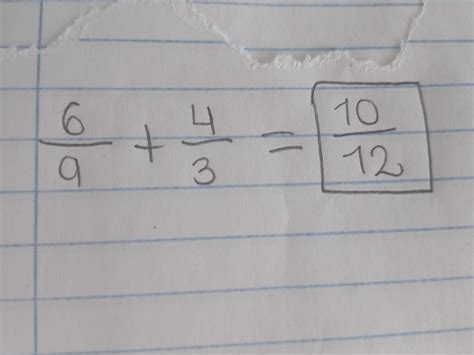 6/9 + 4/3 = 10/12